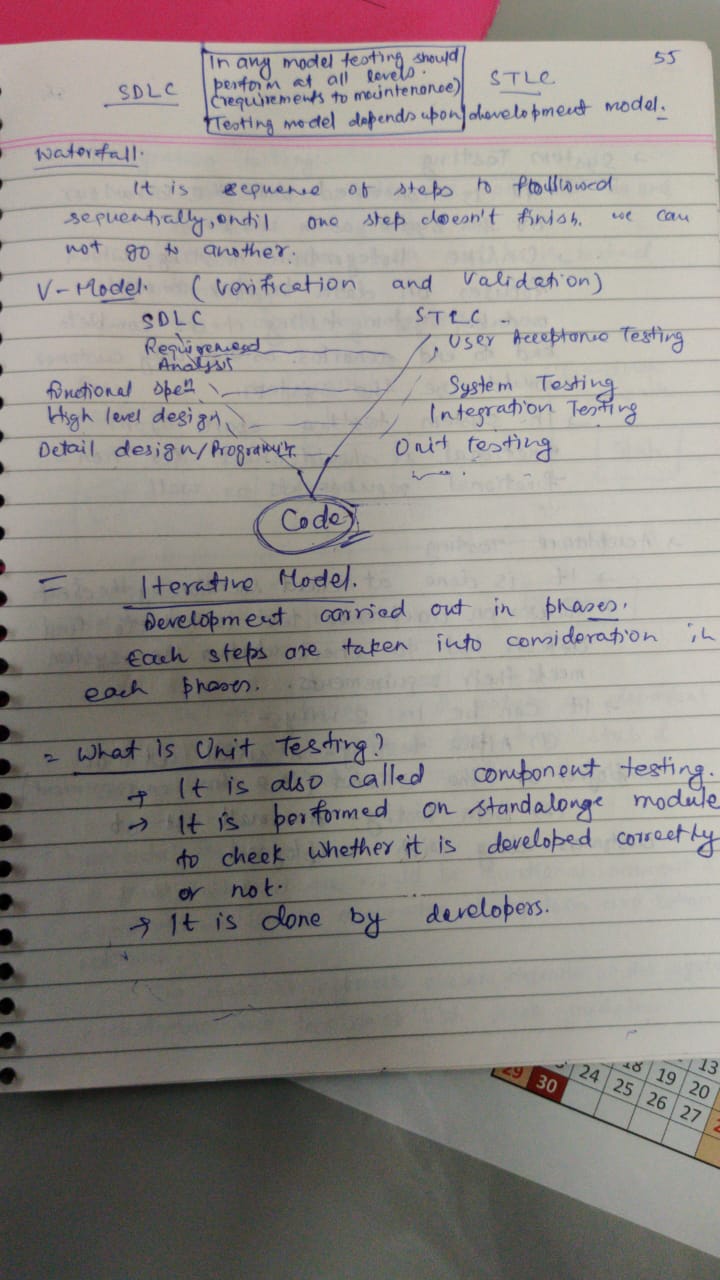 55
In any model testing should
perform at all levels.
(requirements to maintenance)
Testing model depends upon development model.
SDLC
STLC
Waterfall.
It is sequence of steps to followed
sequentially, until one step doesn't finish. we can
not go to another.
V-Model. (verification and validation)
SDLC STLC
Requirement User Acceptance Testing
Analysis
functional spec System Testing
High level design Integration Testing
Detail design/ Unit testing
Code
= Iterative Model.
Development carried out in phases.
Each steps are taken into consideration in
each phases.
= What is Unit Testing?
→ It is also called component testing.
→ It is performed on standalonge module
to check whether it is developed correctly
or not.
→ It is done by developers.
13
18 19 20
29 30 24 25 26 27